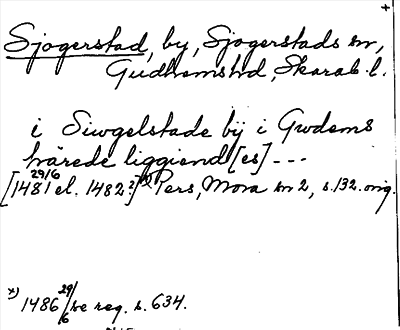 +
Sjogerstad, by, Sjogerstads sn,
Gudhemshd, Skarab. l.
i Siwgelstade bÿ i Gwdems
härede liggiend[es] ---
[1481 29/6 el. 1482?] x) Pers, Mora sn 2, s. 132. orig.
x) 1486 29/6 se reg. s. 634.